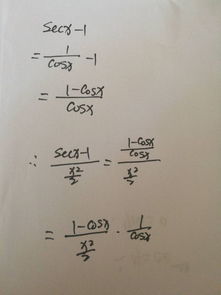 secx-1
= 1/cosx -1
= (1-cosx)/cosx
∴ (secx-1)/(x²/2) = ((1-cosx)/cosx)/(x²/2)
= (1-cosx)/(x²/2) · 1/cosx